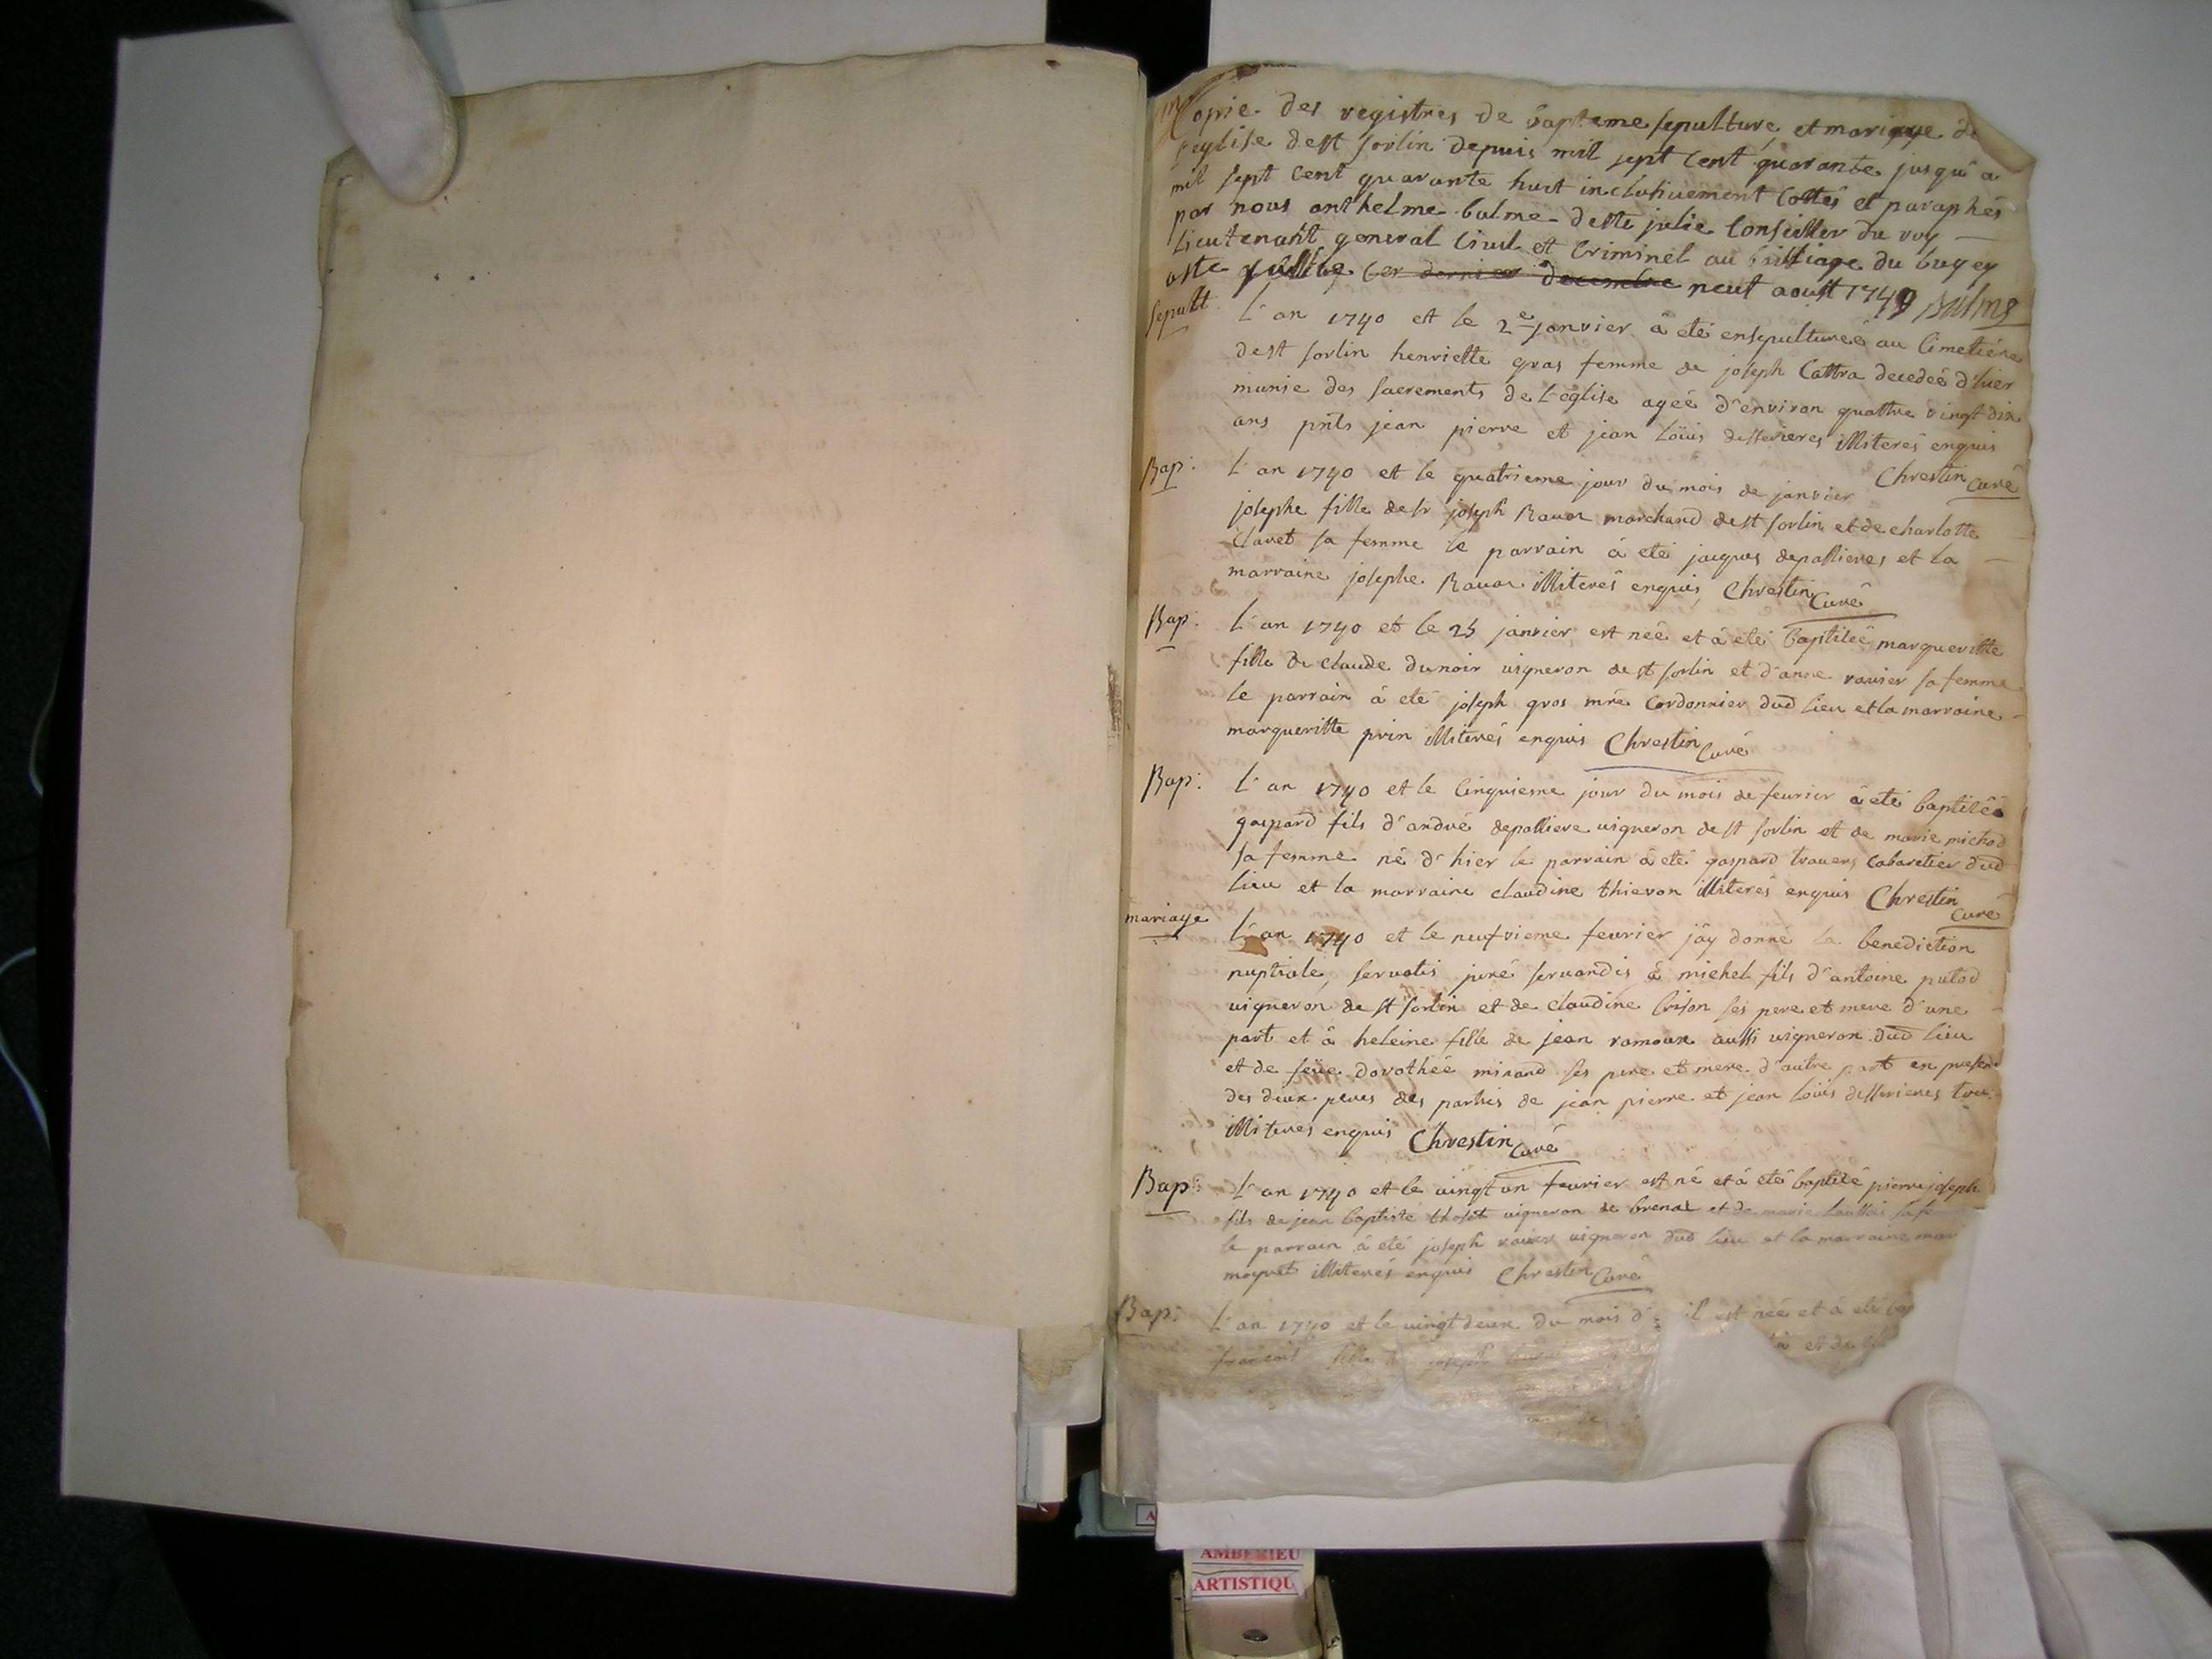 Copie des registres de bapteme sepulture et mariage de
l'eglise de st sorlin depuis mil sept cent quarante jusqu'a
mil sept cent quarante huit inclusivement cottés et paraphés
par nous anthelme balme de ste julie conseiller du roy
lieutenant general civil et criminel au bailliage du bugey
cer dernier decembre neuf aoust 1749 Balme
sepult. L'an 1740 et le 2e janvier à eté ensepultureé au cimetiére
de st sorlin henriette gras femme de joseph Cattra decedeé d'hier
munie des sacrements de l'eglise ageé d'environ quattre vingt dix
ans pnts jean pierre et jean loüis desserieres illiterés enquis
Chrestin Curé
Bap: L'an 1740 et le quatrieme jour du mois de janvier
josephe fille de sr joseph Ravox marchand de st sorlin et de charlotte
clavet sa femme le parrain à eté jacques depallieres et la
marraine josephe Ravox illiterés enquis Chrestin Curé
Bap: L'an 1740 et le 25 janvier est neé et à eté baptiseé margueritte
fille de claude dunoir vigneron de st sorlin et d'anne ravier sa femme
le parrain à eté joseph gros mre Cordonnier dud lieu et la marraine
margueritte prin illiterés enquis Chrestin Curé
Bap: L'an 1740 et le cinquieme jour du mois de fevrier à eté baptisé
gaspard fils d'andré depalliere vigneron de st sorlin et de marie michod
sa femme né d'hier le parrain à eté gaspard travers cabaretier dud
lieu et la marraine claudine thievon illiterés enquis Chrestin Curé
mariage L'an 1740 et le neufvieme fevrier j'ay donné la benediction
nuptiale, servatis juré servandis à michel fils d'antoine putod
vigneron de st sorlin et de claudine brison ses pere et mere d'une
part et à heleine fille de jean ramoux aussi vigneron dud lieu
et de feüe dorothée mirand ses pere et mere d'autre part en presence
des deux peres des parties de jean pierre et jean loüis desserieres tous
illiterés enquis Chrestin Curé
Bap: L'an 1740 et le vingt un fevrier est né et à eté baptisé pierre joseph
fils de jean baptiste vigneron de brenaz et de marie
le parrain à eté joseph ravier vigneron dud lieu et la marraine mar
moynet illiterés enquis Chrestin Curé
Bap: L'an 1740 et le vingt deux du mois d' il est neé et à eté bap
fille joseph et de
AMBERIEU
ARTISTIQU